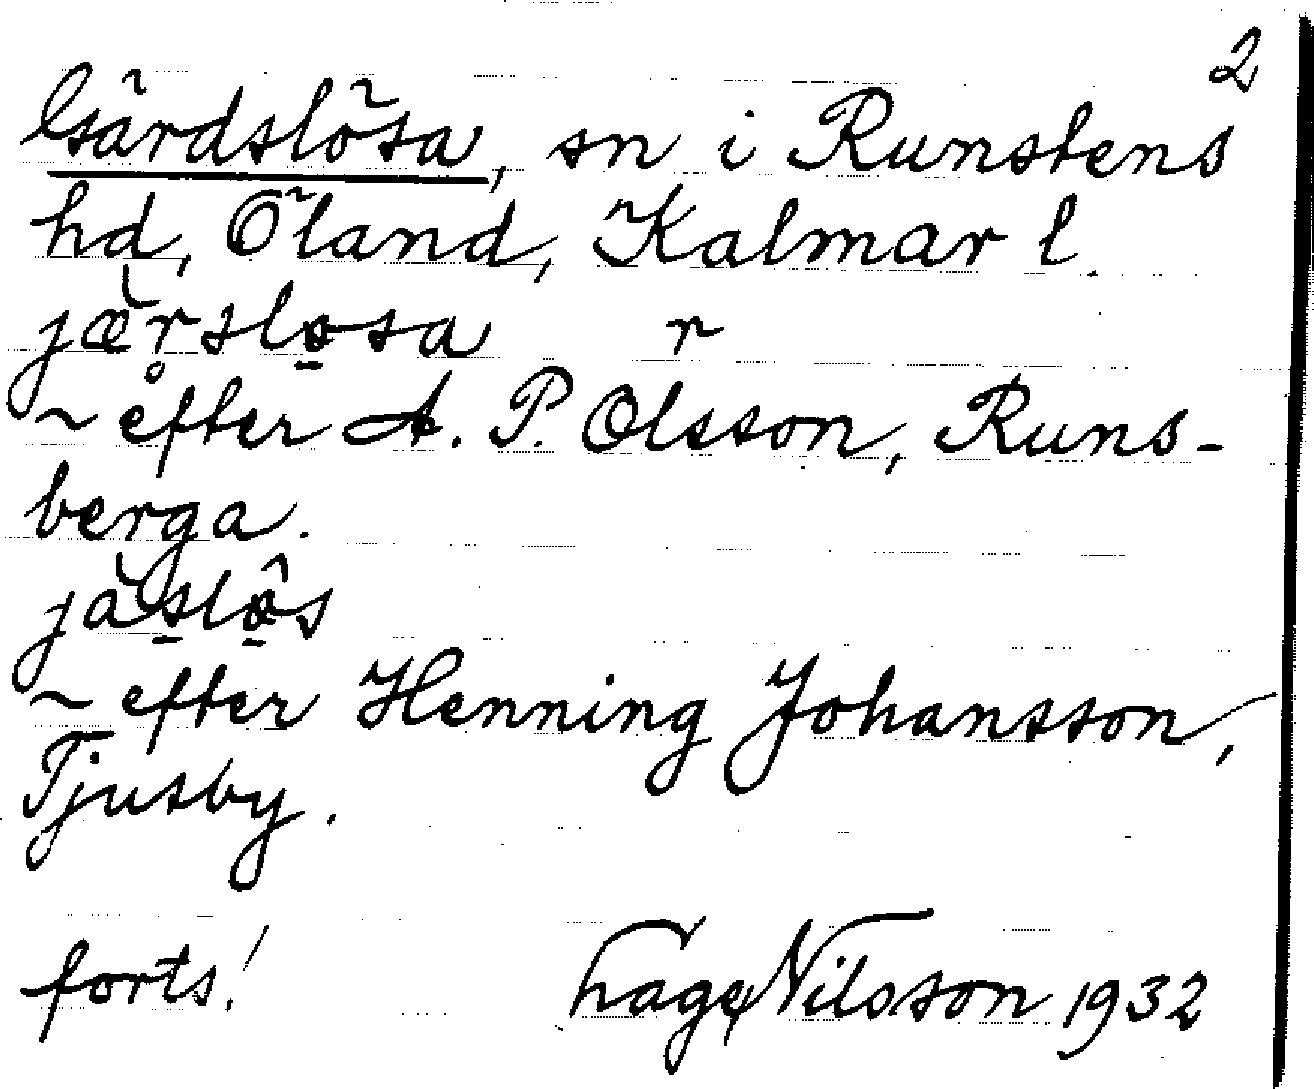 2
Gärdslösa, sn i Runstens
hd, Öland, Kalmar l.
jærslosa r
~ efter A. P. Olsson, Runs-
berga.
jäslôs
~ efter Henning Johansson,
Tjusby.
forts! Hage Nilsson 1932